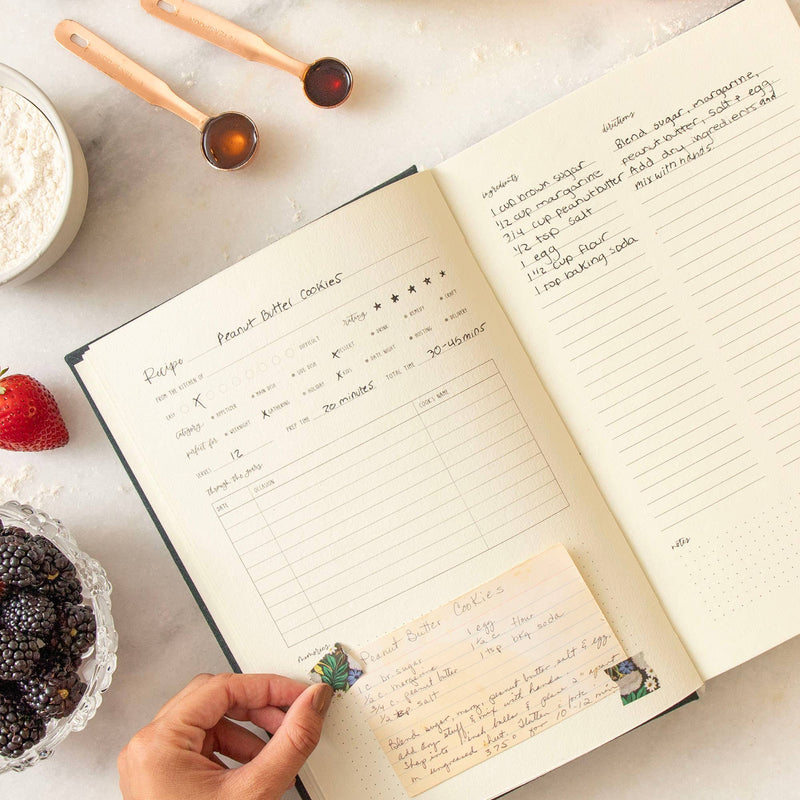 Recipe Peanut Butter Cookies
FROM THE KITCHEN OF
rating
EASY X DIFFICULT
category APPETIZER MAIN DISH SIDE DISH X DESSERT DRINK REMEDY CRAFT
perfect for WEEKNIGHT X GATHERING HOLIDAY X KIDS DATE NIGHT HOSTING DELIVERY
SERVES 12 PREP TIME 20 minutes TOTAL TIME 30-45mins
through the years
DATE OCCASION COOK'S NAME
memories
Peanut Butter Cookies
1 c br. sugar 1 egg
1/2 c. margarine 1 1/2 c flour
3/4 c. peanut butter 1 tsp bkg soda
1/2 tsp salt
Blend sugar, marg, peanut butter, salt & egg.
add dry stuff & mix with hands.
Shape into 1 inch balls & place 2" apart
on ungreased sheet. Flatten c fork
375° for 10-12 min
ingredients
1 cup brown sugar
1/2 cup margarine
3/4 cup peanut butter
1/2 tsp salt
1 egg
1 1/2 cup flour
1 tsp baking soda
directions
Blend sugar, margarine,
peanut butter, salt + egg
Add dry ingredients and
mix with hands.
notes